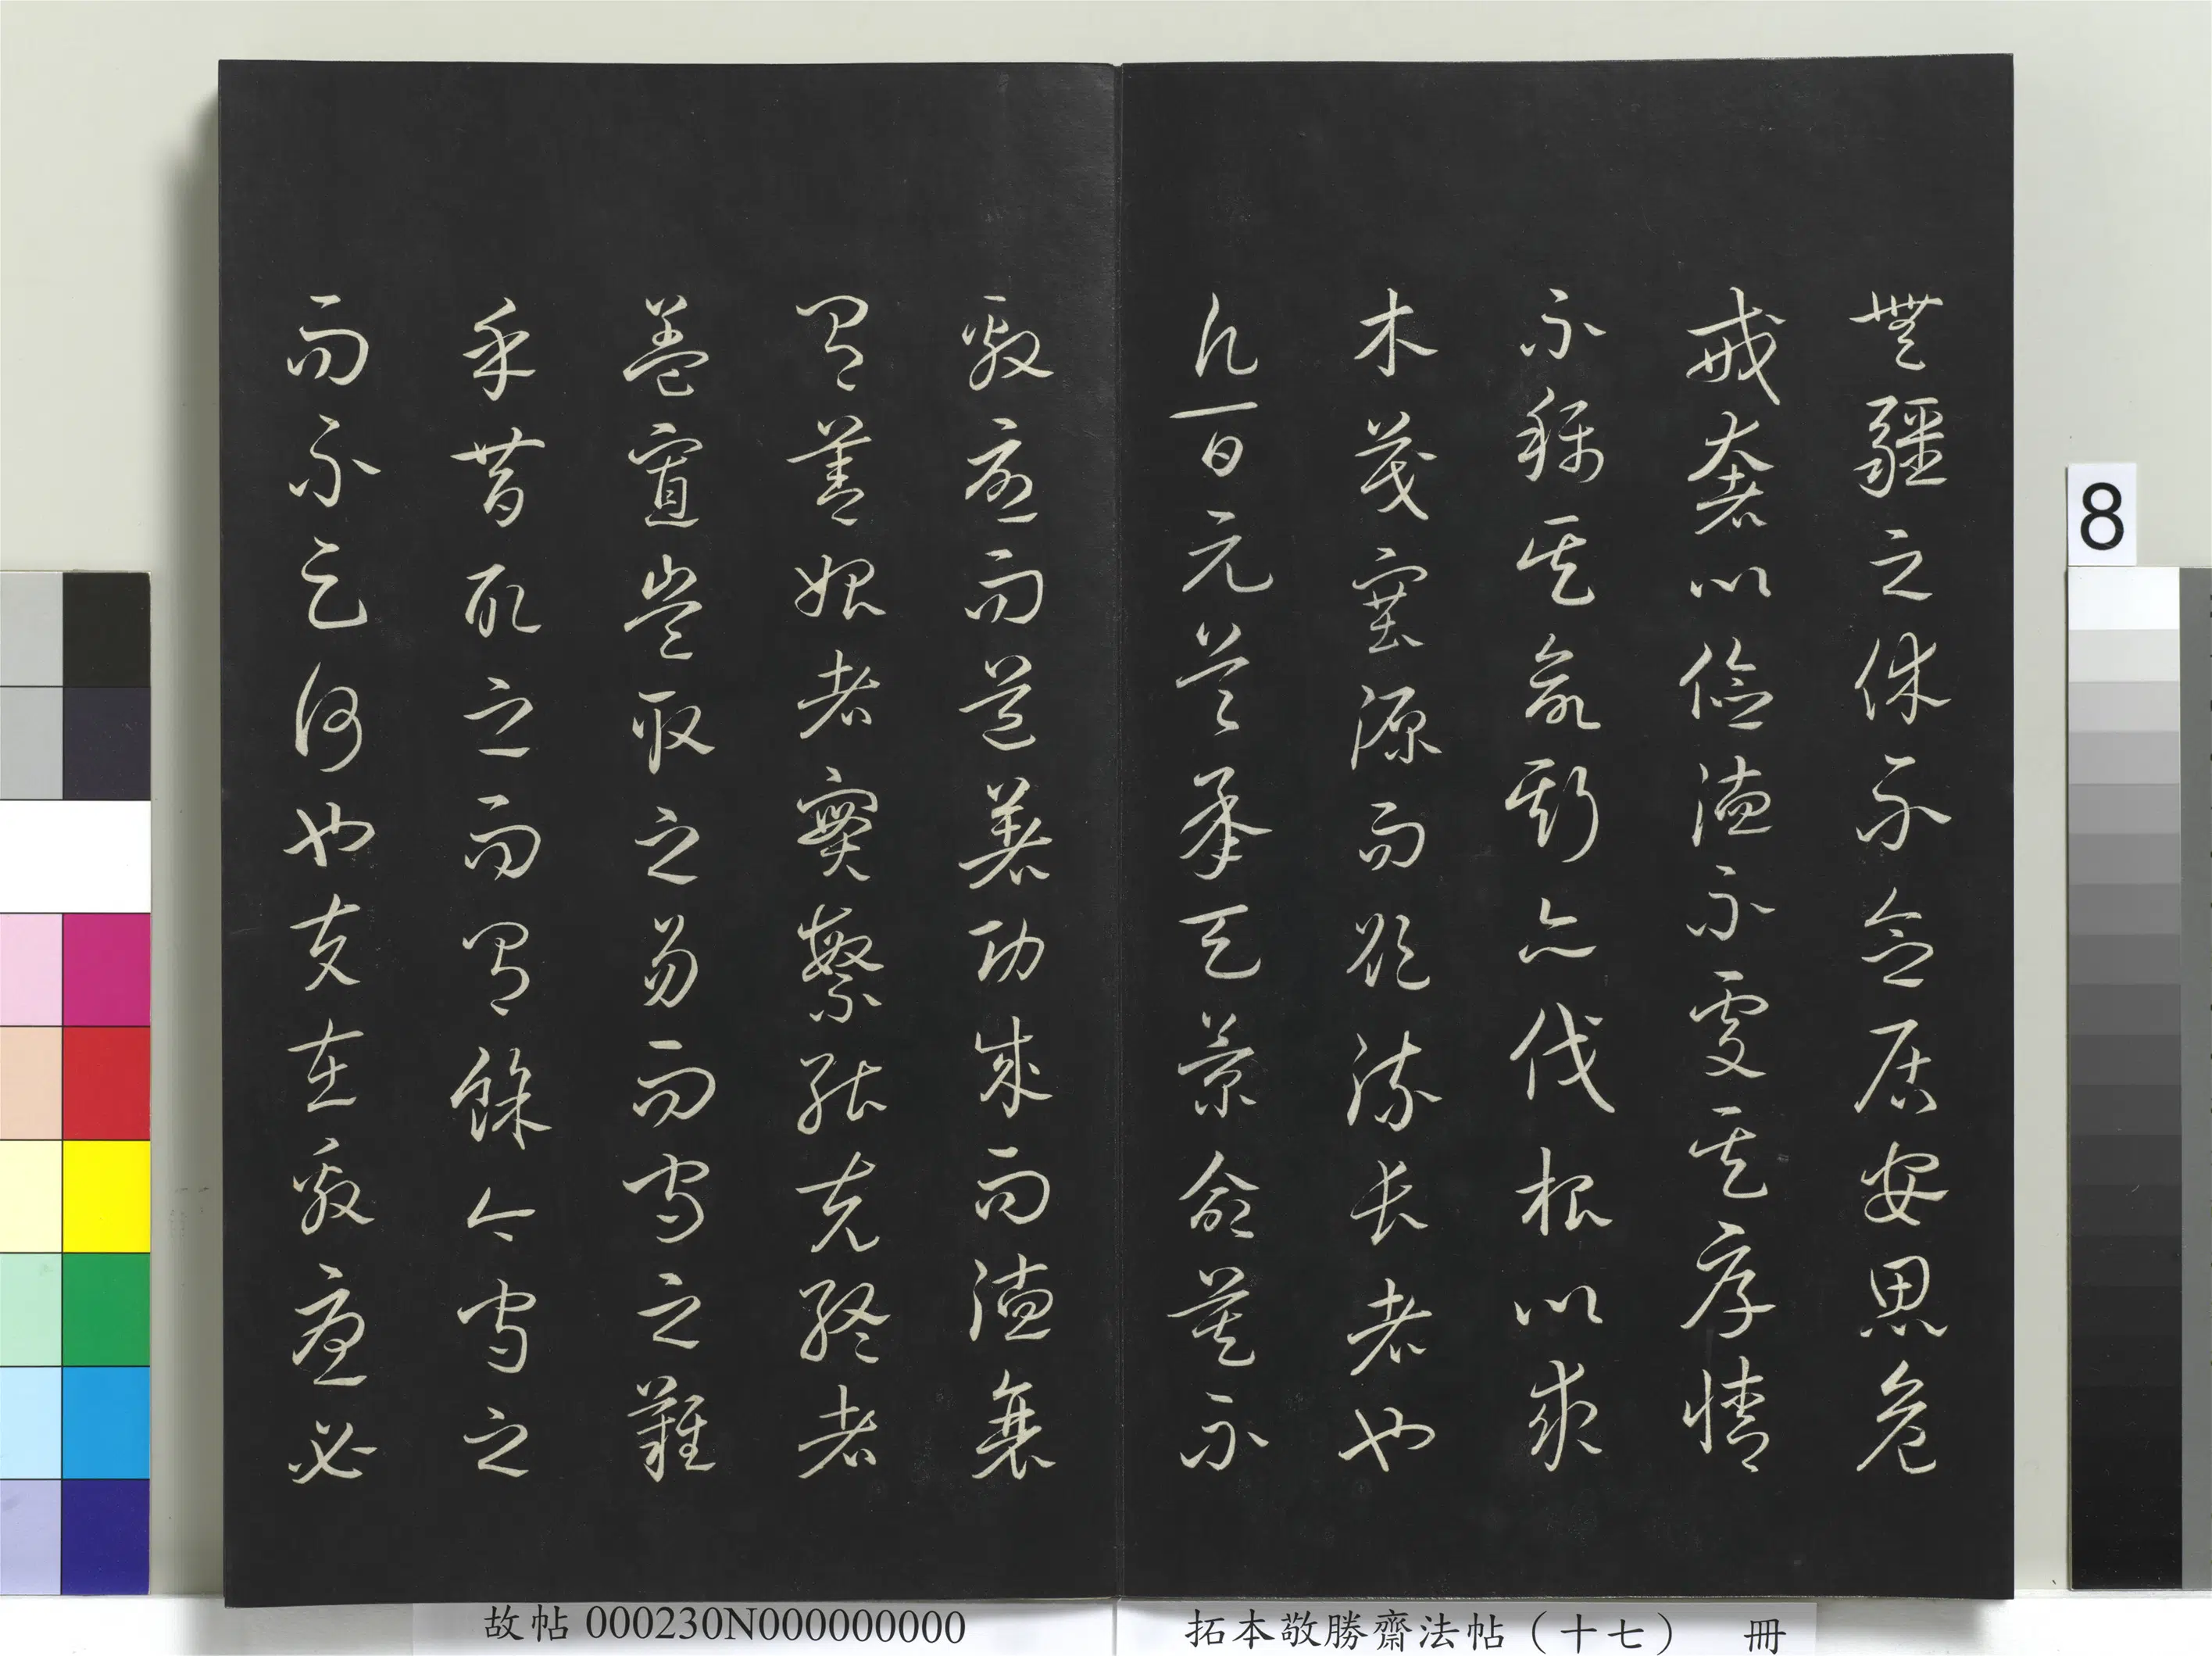 無疆之休不念居安思危
戒奢以儉德不處其厚情
不勝其欲斯亦伐根以求
木茂塞源而欲流長者也
凡百元首承天景命莫不
殷憂而道著功成而德衰
有善始者實繁能克終者
蓋寡豈取之易而守之難
乎昔取之而有餘今守之
而不足何也夫在殷憂必
8
故帖 000230N000000000
拓本敬勝齋法帖（十七） 冊